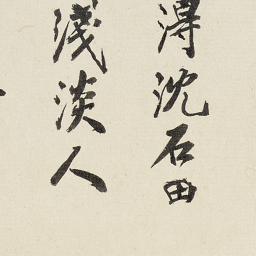 得沈石田
淺淡人